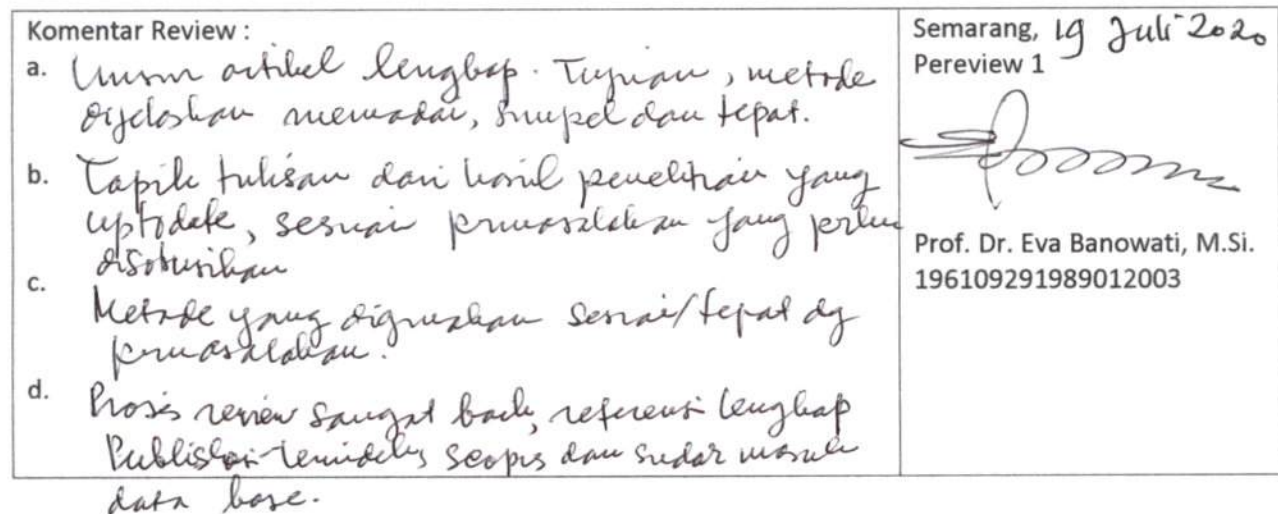 Komentar Review :
a. Unsur artikel lengkap. Tujuan, metode
dijelaskan memadai, simpel dan tepat.
b. Topik tulisan dari hasil penelitian yang
uptodate, sesuai permasalahan yang perlu
disolusikan
c. Metode yang digunakan sesuai/tepat dg
permasalahan.
d. Proses review sangat baik, referensi lengkap
Publisher terindeks scopus dan sudah masuk
data base.
Semarang, 19 Juli 2020
Pereview 1
Prof. Dr. Eva Banowati, M.Si.
196109291989012003